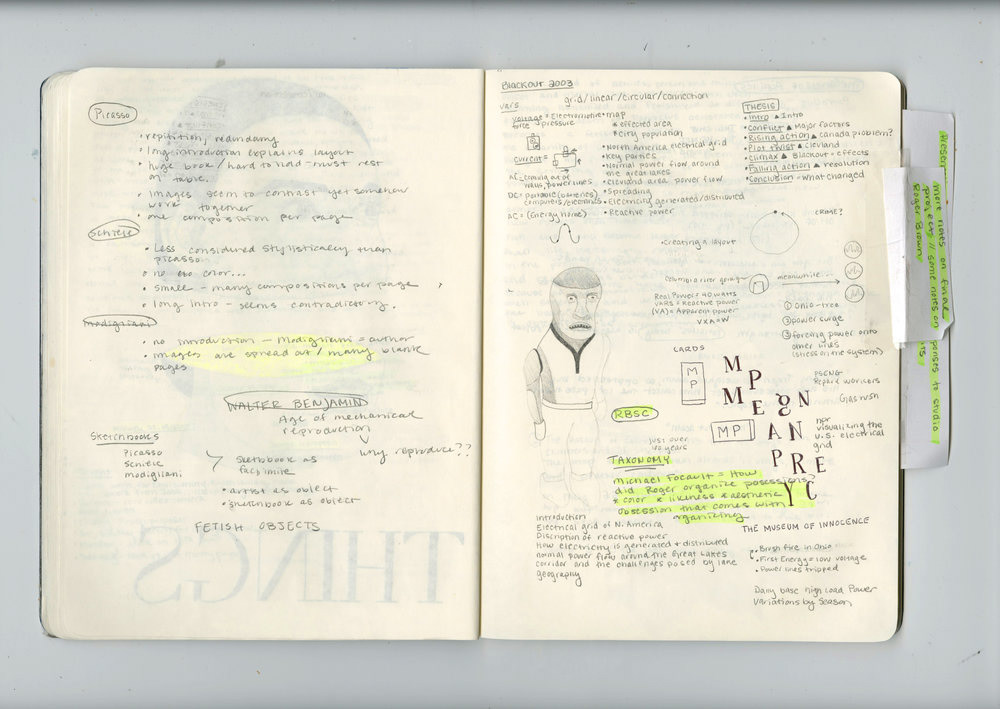 Picasso
• repitition, redundancy
• long introduction explains layout
• huge book / hard to hold - must rest
on table.
• Images seem to contrast yet somehow
work together
• one composition per page
Schiele
• Less considered stylistically than
picasso.
• no color...
• small - many compositions per page
• long intro - seems contradictory.
Modigliani
• no introduction - Modigliani = author
• images are spread out / many blank
pages
WALTER BENJAMIN
Age of mechanical
reproduction
why reproduce??
Sketchbooks
Picasso
Schiele
modigliani
sketchbook as
facsimile
• artist as object
• sketchbook as object
FETISH OBJECTS
THINGS
Blackout 2003
vars
grid/linear/circular/connection
voltage = Electromotive
force pressure
current =
AC =
DC = portable (batteries)
computers/electronics
AC = (Energy home)
• map
* effected area
* city population
• North America electrical grid
• Key parties
• Normal power flow around
the great lakes
• cleveland area power flow
• Spreading
• Electricity generated/distributed
• Reactive power
THESIS
• Intro ▲ Intro
• Conflict ▲ Major factors
• Rising action ▲ canada problem?
• Plot twist ▲ Cleveland
• Climax ▲ Blackout - effects
• Falling action ▲ resolution
• Conclusion - what changed
• Creating a layout
erase?
Columbia river going
meanwhile...
Real Power = 40 watts
VARS = Reactive power
(VA) = Apparent power
VXA = W
① Ohio - tree
② power surge
③ forcing power onto
other lines
(stress on the system)
CARDS
M
P
MP
M P
M E g N
A N
P R E
Y C
PSENG
Repair workers
Gas rush
npr
visualizing the
U.S. electrical
grid
RBSC
just over
40 years
TAXONOMY
Michael Focault = How
did Roger organize posessions?
* color * likeness * aesthetic
obsession that comes with
organizing
Introduction
Electrical grid of N. America
Discription of reactive power
How electricity is generated + distributed
normal power flow around the Great Lakes
corridor and the challenges posed by lake
geography
THE MUSEUM OF INNOCENCE
• Brush fire in Ohio
• First Energy = low voltage
• Power lines tripped
Daily base high Load Power
Variations by Season
more notes on final
project // some notes on
Roger Brown
responses to studio